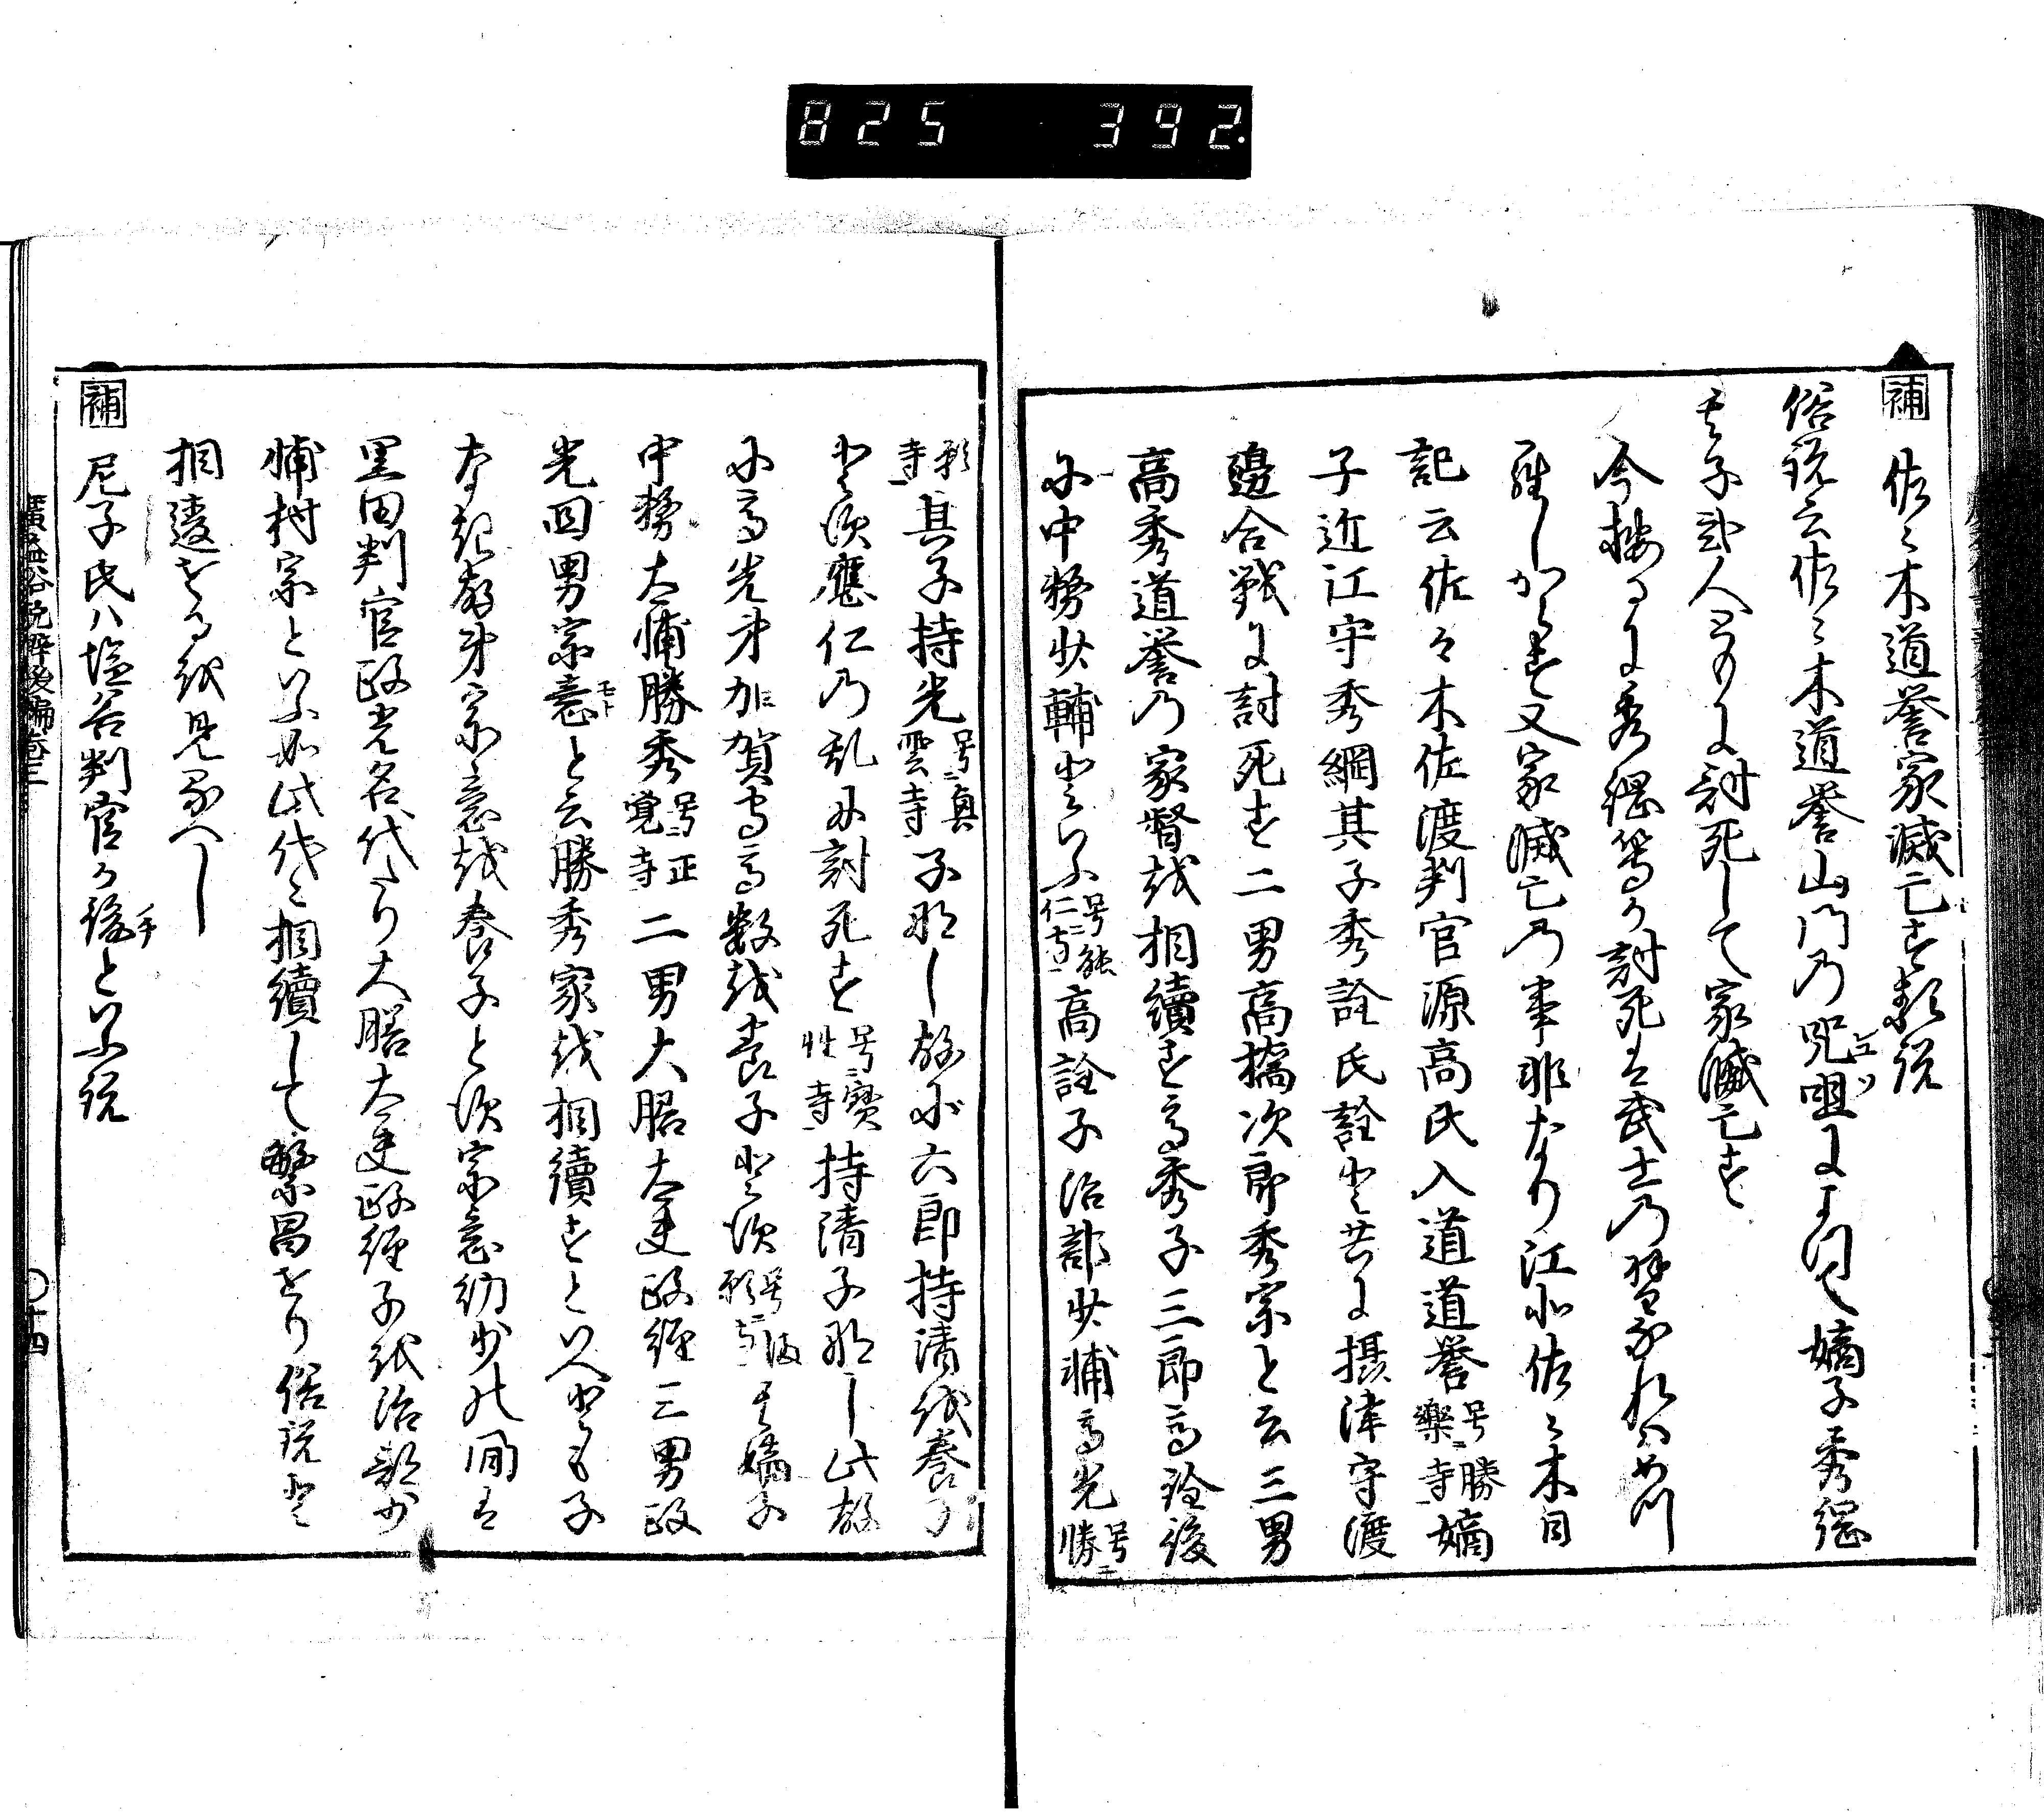 825 392.
補 佐々木道誉家滅亡す類説
俗説云佐々木道誉山門の呪咀によつて嫡子秀綱
其子弐人ともに討死して家滅亡す
今按るに秀綱等か討死は武士の習なれはめつ
罪しからす又家滅亡の事非なり江北佐々木目
記云佐々木佐渡判官源高氏入道道誉号勝楽寺嫡
子近江守秀綱其子秀詮氏詮と共に摂津守渡
邉合戦に討死す二男高橋次郎秀宗と云三男
高秀道誉の家督を相續す高秀子三郎高詮後
に中務少輔といふ号能仁寺高詮子治部少輔高光号勝
願寺其子持光号真雲寺子なし故に六郎持清を養子
とす後應仁の乱に討死す号寶性寺持清子なし此故
に高光弟加賀守高数を養子とす後号満願寺其嫡子
中務大輔勝秀号正覚寺二男大膳大夫政経三男政
光四男宗意モトと云勝秀家を相續すといへとも子
なき故弟宗意を養子とす後宗意幼少の間は
黒田判官政光名代たり大膳大夫政経子を治部少
輔材宗といふ如此代々相續して繁昌せり俗説と
相違せるを見るへし
補 尼子氏ハ塩谷判官か孫といふ説
廣益俗説辨後編巻三
〇十四